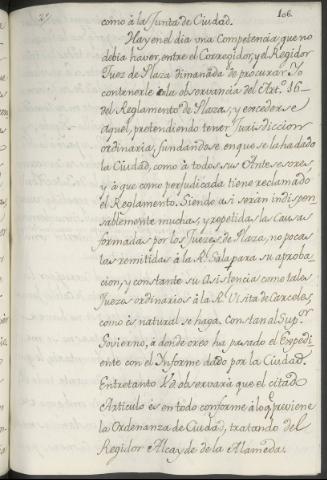 106.
como à la Junta de Ciudad.
Hay en el dia una Competencia, que no
debia haver, entre el Corregidor, y el Regidor
Juez de Plaza dimanada de procurar Yo
contenerle a la observancia del Art.º 16
del Reglamento de Plazas, y excederse
aquel, pretendiendo tener Jurisdiccion
ordinaria, fundandose en que se la ha dado
la Ciudad, como à todos sus Antesesores,
y à que como perjudicada tiene reclamado
el Reglamento. Siendo asi serán indispen
sablemente muchas, y repetidas las Causas
formadas por los Jueces de Plaza, no pocas
las remitidas à la R.l Sala para su aproba
cion, y constante su Asistencia como tales
Jueces ordinarios à la R.l Visita de Carceles,
como es natural se haga. Constan al Sup.or
Govierno, à donde creo ha pasado el Expedi
ente con el Informe dado por la Ciudad.
Entretanto V.E. observará que el citado
Articulo es en todo conforme à lo q.e previene
la Ordenanza de Ciudad, tratando del
Regidor Alcayde de la Alameda.